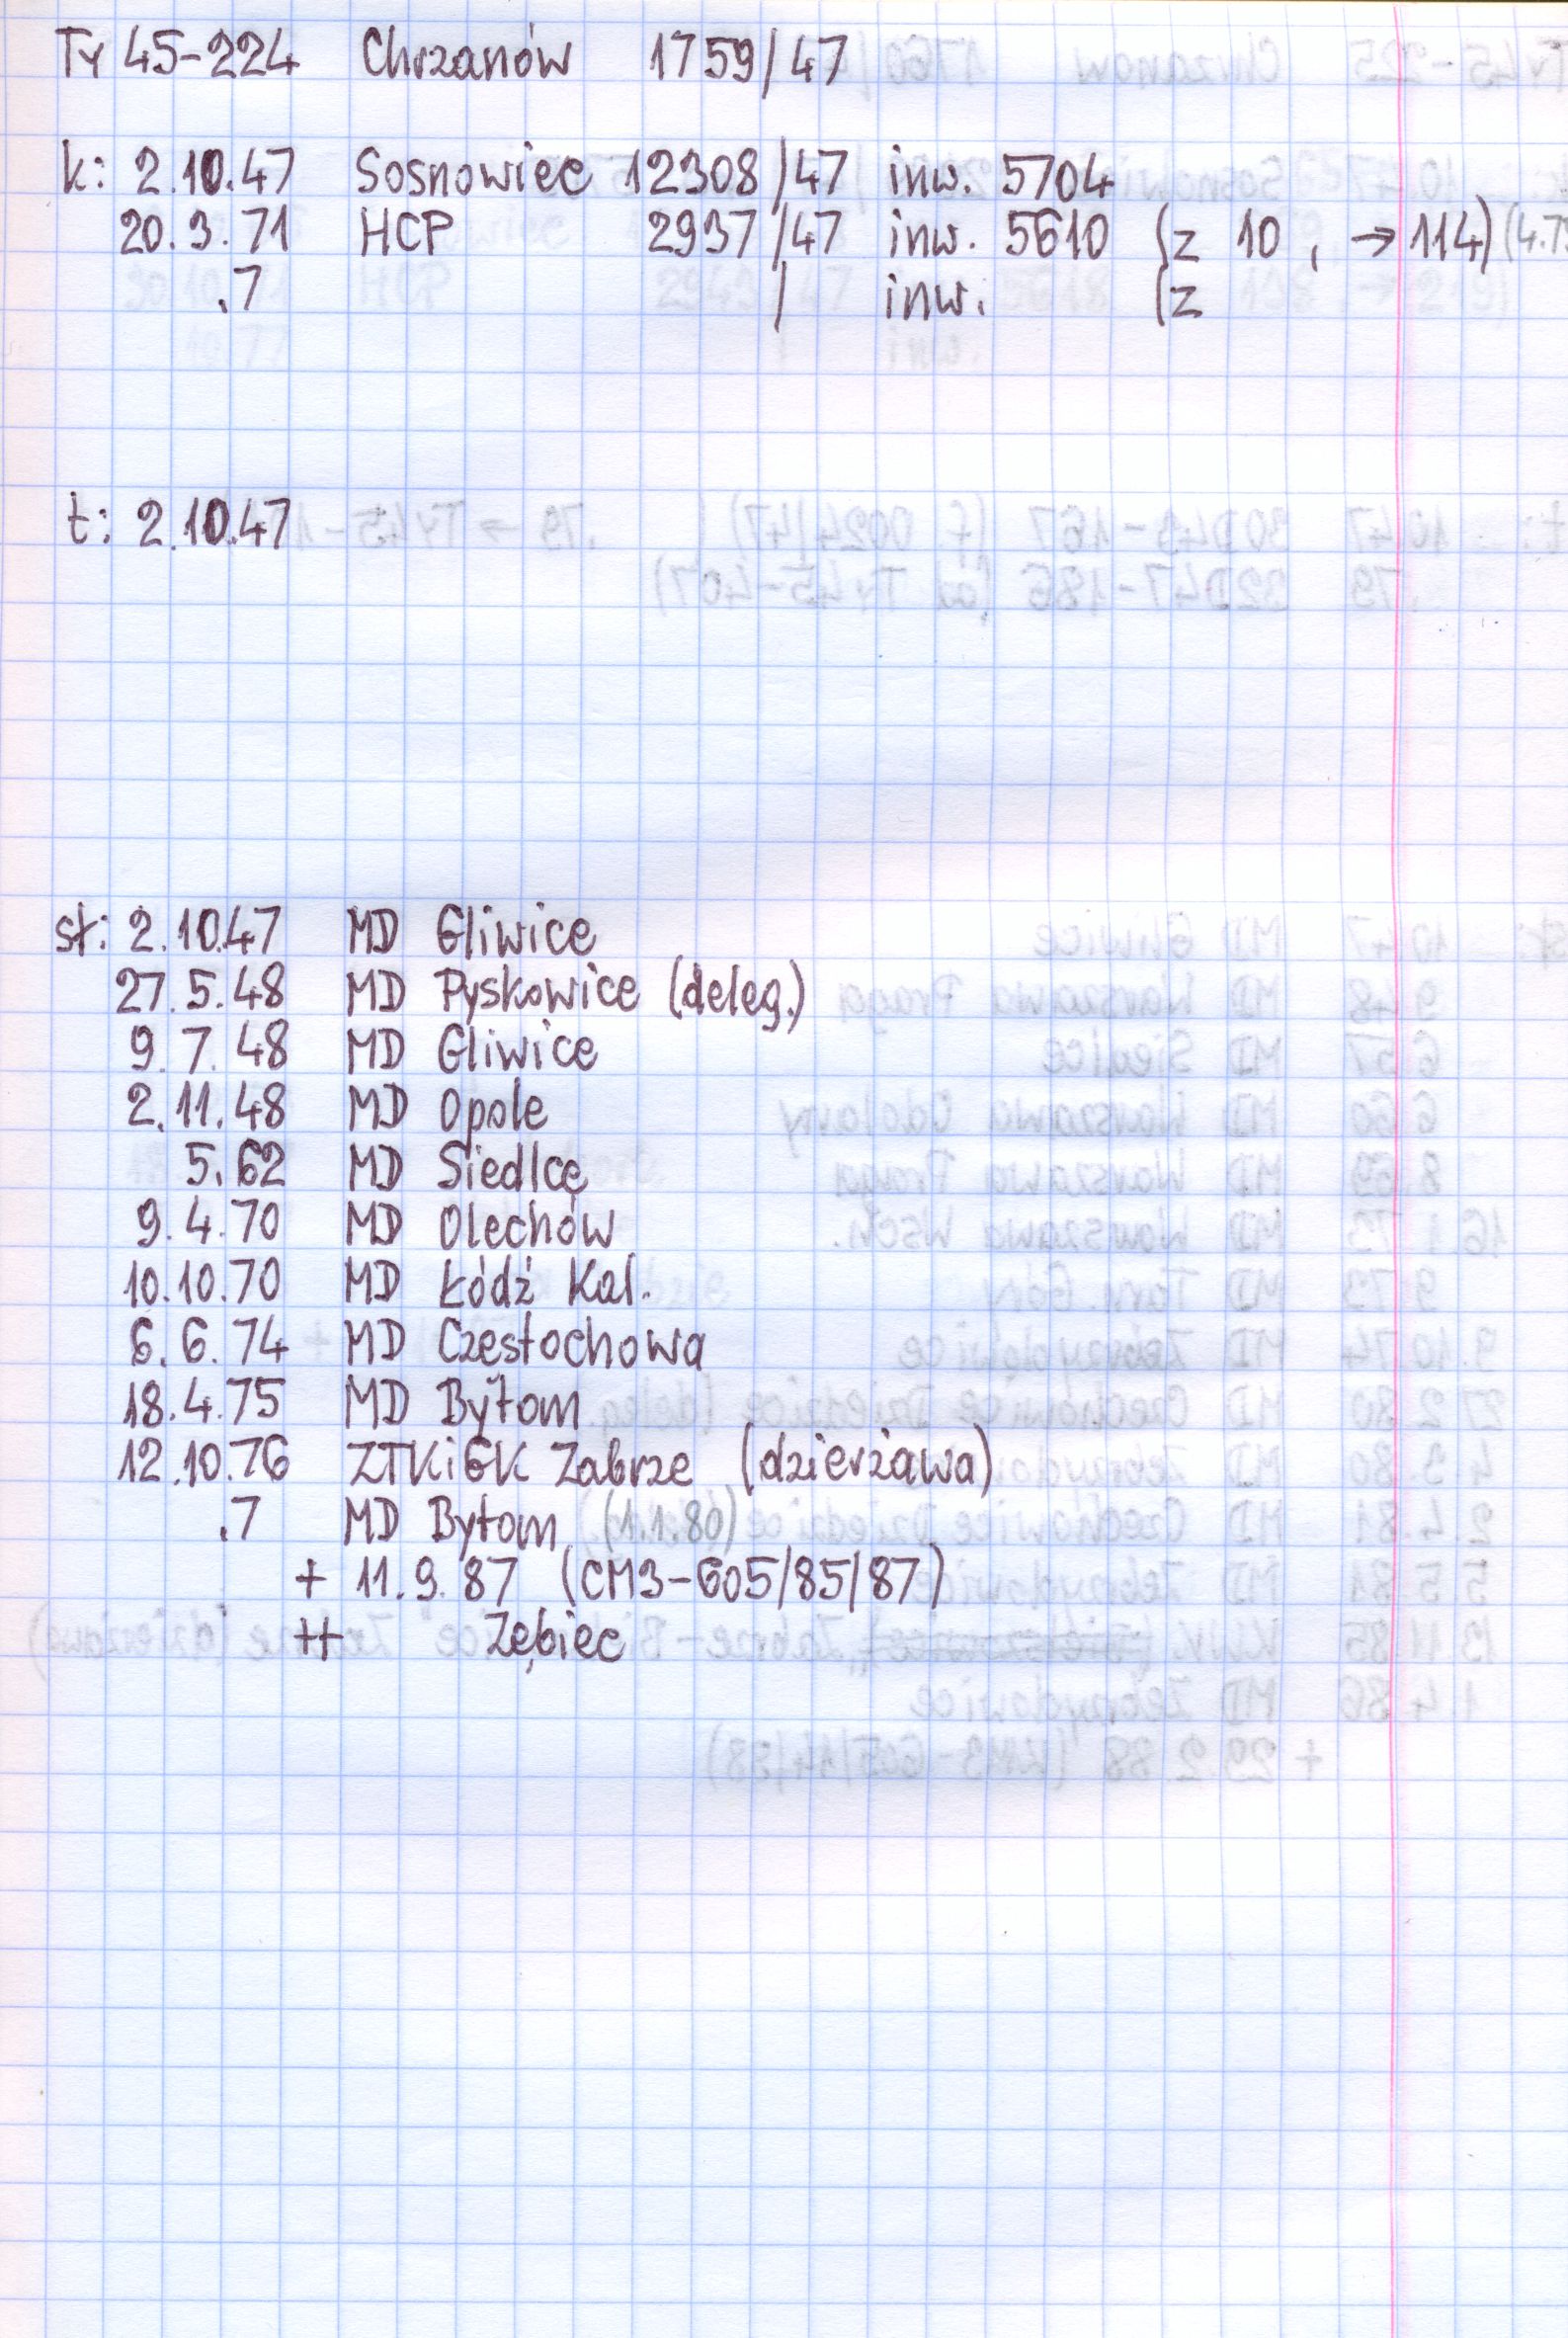 Ty 45-224 Chrzanów 1759/47
k: 2.10.47 Sosnowiec 12308/47 inw. 5704
20.3.71 HCP 2937/47 inw. 5610 (z 10, → 114) (4.75
.7 / inw. (z
t: 2.10.47
st: 2.10.47 MD Gliwice
27.5.48 MD Pyskowice (deleg.)
9.7.48 MD Gliwice
2.11.48 MD Opole
5.62 MD Siedlce
9.4.70 MD Olechów
10.10.70 MD Łódź Kal.
6.6.74 MD Częstochowa
18.4.75 MD Bytom
12.10.76 ZTKiGK Zabrze (dzierżawa)
.7 MD Bytom (1.1.80)
+ 11.9.87 (CM3-605/85/87)
++ Zębiec